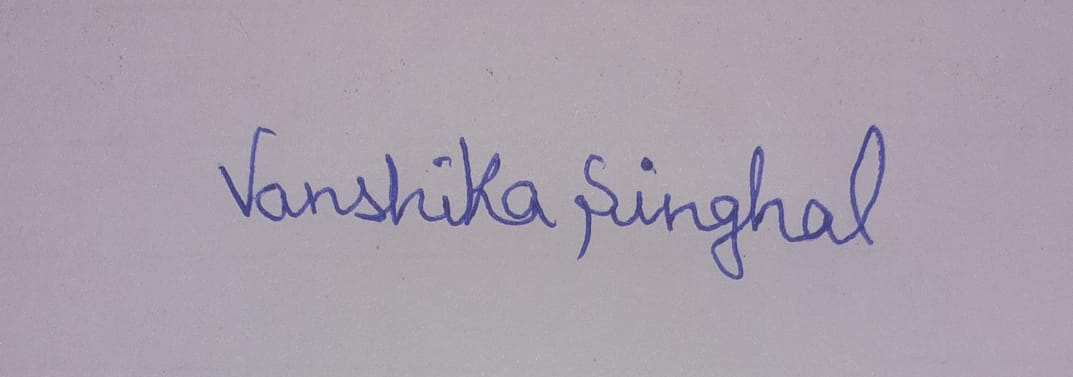 Vanshika Singhal